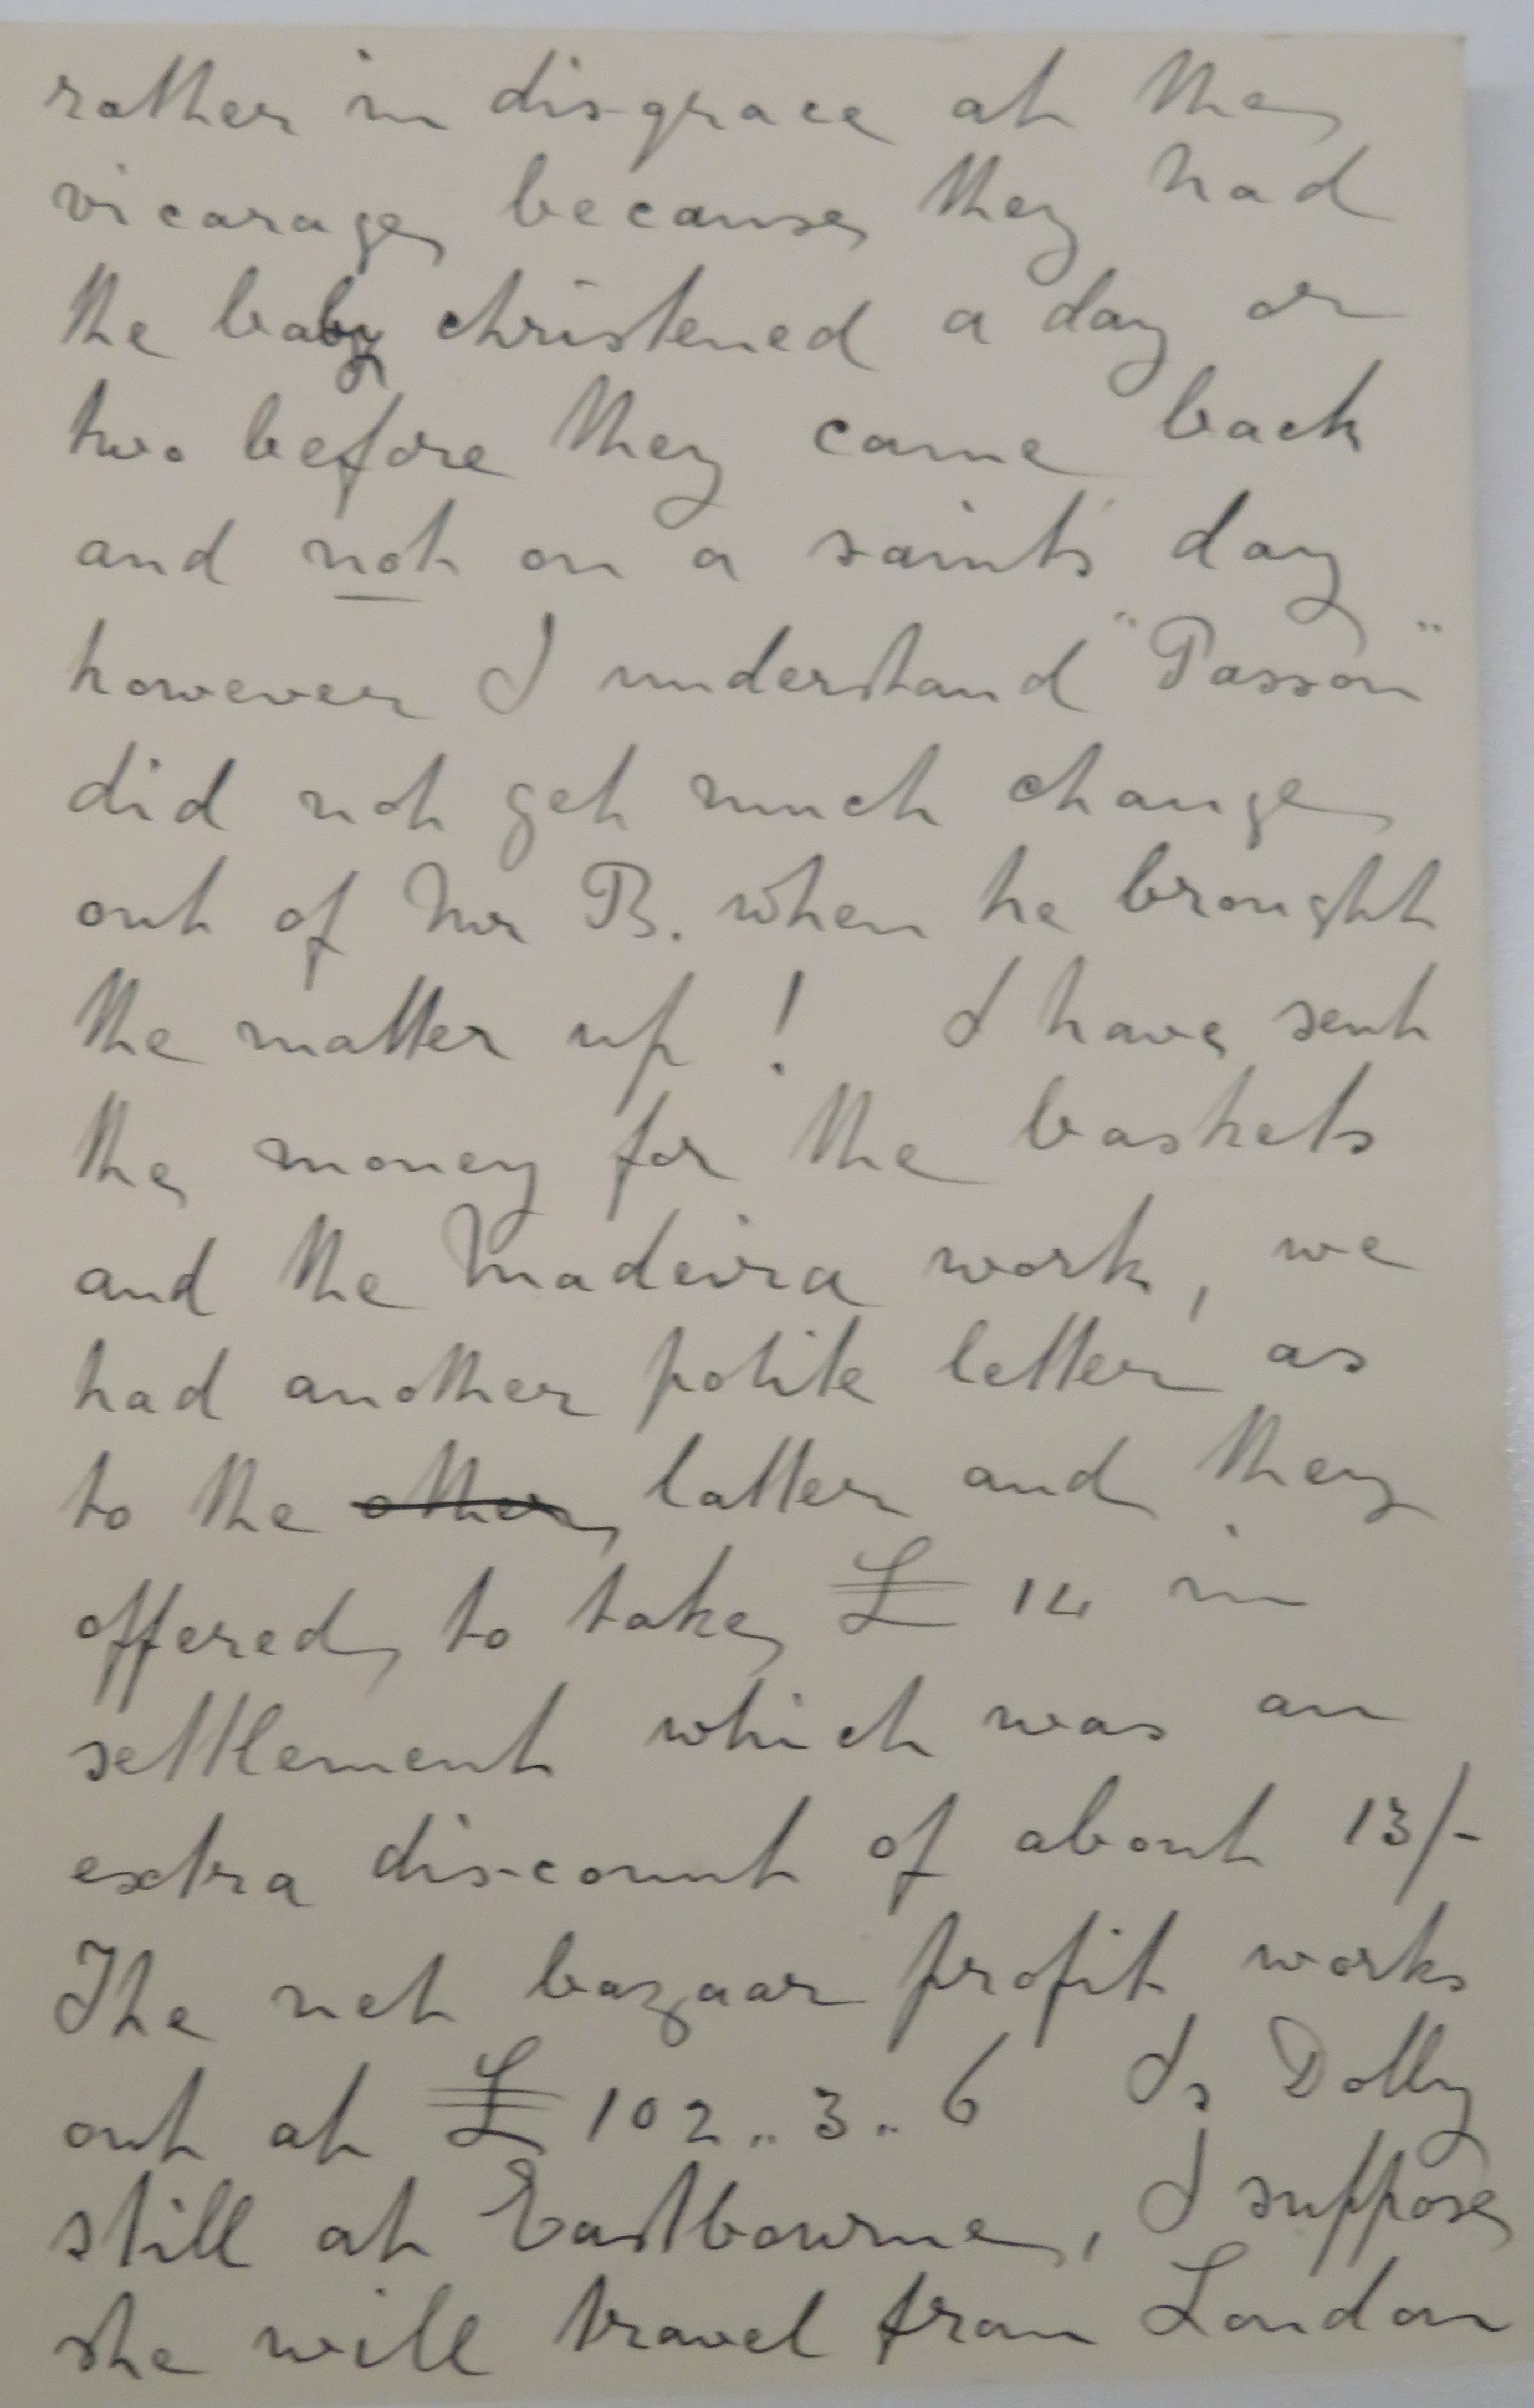 rather in disgrace at the
vicarage because they had
the baby christened a day or
two before they came back
and not on a saint's day
however I understand "Passon"
did not get much change
out of Mr B. when he brought
the matter up! I have sent
the money for the baskets
and the Madeira work, we
had another polite letter as
to the other latter and they
offered to take £ 14 in
settlement which was an
extra discount of about 13/-
The net bazaar profit works
out at £ 102..3..6 Is Dolly
still at Eastbourne, I suppose
she will travel from London